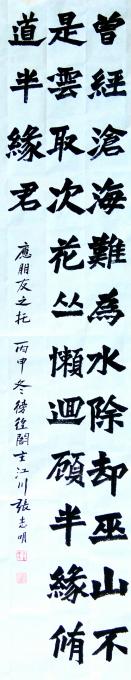 曾經滄海難為水除却巫山不
是雲取次花丛懶迴顧半緣脩
道半緣君
應朋友之托
丙申冬傍徑閣主江川張志明